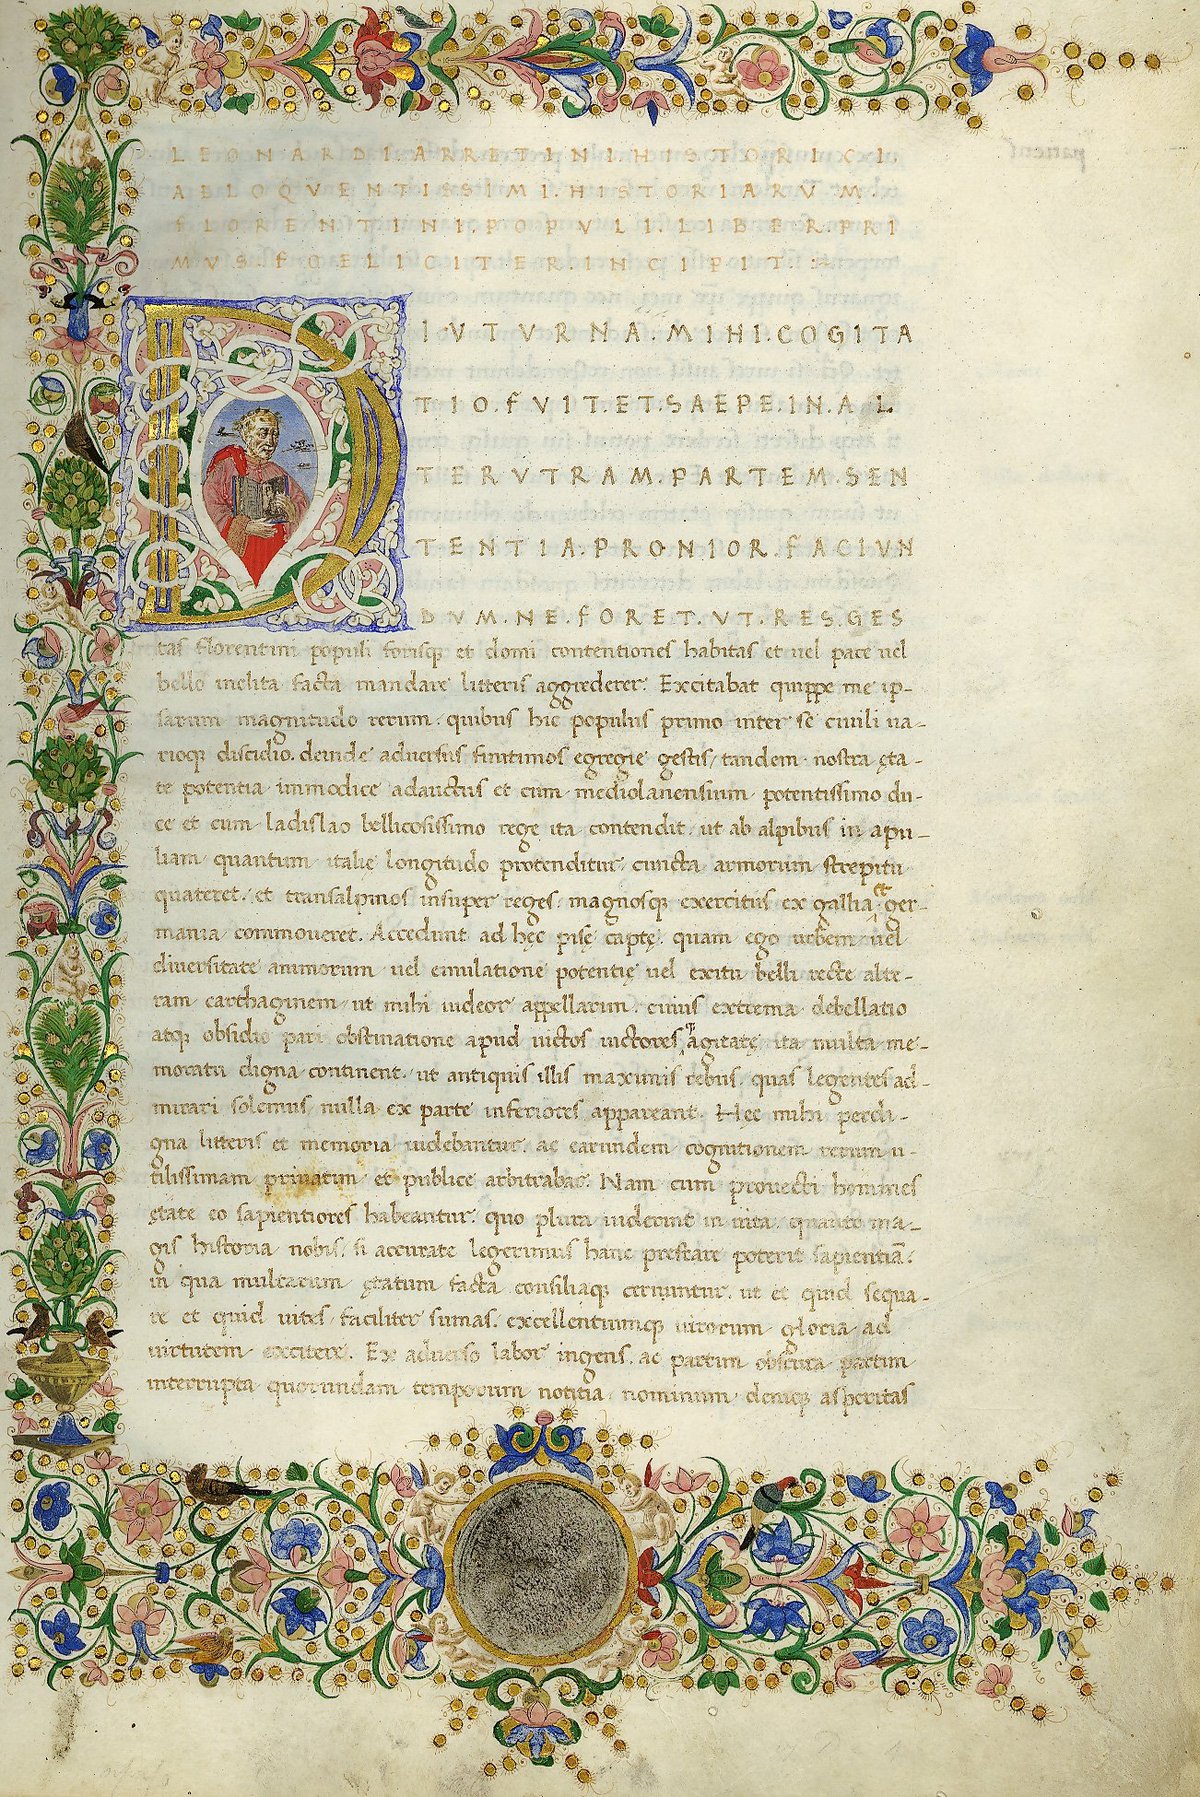 LEONARDI.ARRETINI.HISTORICI.
AELOQVENTISSIMI.HISTORIARVM.
FLORENTINI.POPVLI.LIBER.PRI
MVS.FOELICITER.INCIPIT.
DIVTVRNA.MIHI.COGITA
TIO.FVIT.ET.SAEPE.IN.AL
TERVTRAM.PARTEM.SEN
TENTIA.PRONIOR.FACIVN
DVM.NE.FORET.VT.RES.GES
tas florentini populi forisq; et domi contentiones habitas et uel pace uel
bello inclita facta mandare litteris aggrederer. Excitabat quippe me ip-
sarum magnitudo rerum. quibus hic populus primo inter se ciuili ua-
rioq; discidio. deinde aduersus finitimos egregie gestis/ tandem nostra ęta-
te potentia immodice adauctus et cum mediolanensium potentissimo du-
ce et cum ladislao bellicosissimo rege ita contendit. ut ab alpibus in apu-
liam quantum italie longitudo protenditur cuncta armorum strepitu
quateret. et transalpinos insuper reges. magnosq; exercitus ex gallia et ger-
mania commoueret. Accedunt ad hęc pisę captę. quam ego urbem uel
diuersitate animorum uel emulatione potentię uel exitu belli recte alte-
ram carthaginem ut mihi uideor appellarim. cuius extrema debellatio
atq; obsidio pari obstinatione apud uictos uictores agitatę ita multa me-
moratu digna continent. ut antiquis illis maximis rebus. quas legentes ad-
mirari solemus/ nulla ex parte inferiores appareant. Hec mihi perdi-
gna litteris et memoria uidebantur. ac earundem cognitionem rerum u-
tilissimam priuatim et publice arbitrabar. Nam cum prouecti homines
ętate eo sapientiores habeantur. quo plura uiderint in uita. quanto ma-
gis historia nobis. si accurate legerimus hanc prestare poterit sapientiā.
in qua multarum ętatum facta consiliaq; cernuntur. ut et quid sequa-
re et quid uites faciliter sumas. excellentiumq; uirorum gloria ad
uirtutem excitere. Ex aduerso labor ingens. ac partim obscura partim
interrupta quorundam temporum notitia nominum deniq; asperitas